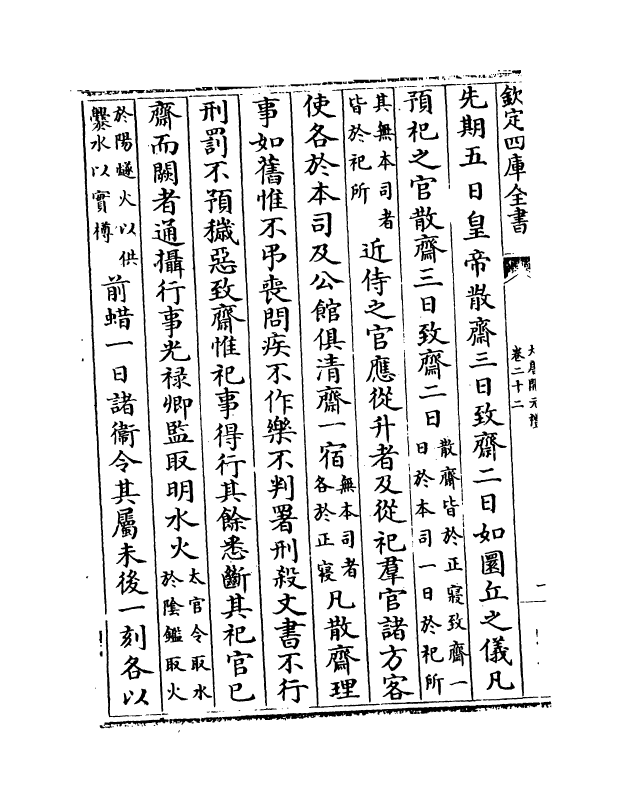 欽定四庫全書
大唐開元禮
卷二十二
二
先期五日皇帝散齋三日致齋二日如圜丘之儀凡
預祀之官散齋三日致齋二日散齋皆於正寢致齋一日於本司一日於祀所
其無本司者皆於祀所近侍之官應從升者及從祀羣官諸方客
使各於本司及公館俱清齋一宿無本司者各於正寢凡散齋理
事如舊惟不弔喪問疾不作樂不判署刑殺文書不行
刑罰不預穢惡致齋惟祀事得行其餘悉斷其祀官已
齋而闕者通攝行事光祿卿監取明水火太官令取水於陰鑑取火
於陽燧火以供爨水以實樽前蜡一日諸衞令其屬未後一刻各以